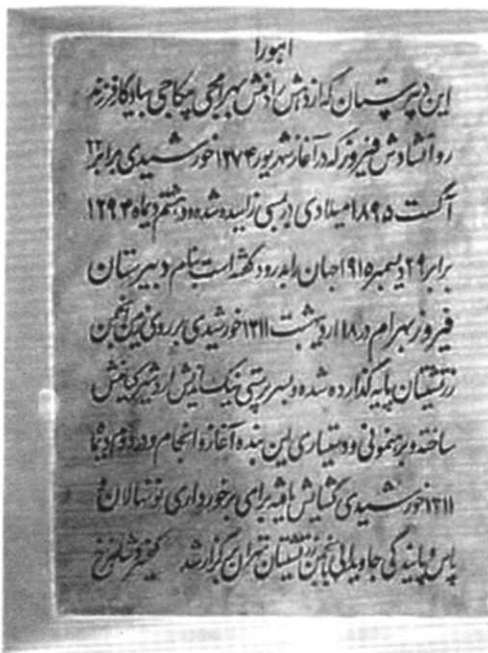 اهورا
این دبیرستان که از دهش رادمنش بهرامجی بیکاجی بیادگار فرزند
روانشادش فیروز که در آغاز شهریور ۱۲۷۴ خورشیدی برابر ۲۲
آگست ۱۸۹۵ میلادی در بمبی زاییده شده و در هشتم دیماه ۱۲۹۴
برابر ۲۹ دیسمبر ۱۹۱۵ جهان را بدرود گفته است بنام دبیرستان
فیروز بهرام در ۱۸ اردیبهشت ۱۳۱۱ خورشیدی بر روی زمین انجمن
زرتشتیان پایه گذارده شده و بسرپرستی نیک اندیش اردشیر کیامنش
ساخته و برهنمونی و دستیاری این بنده آغاز و انجام و در دوم دیماه
۱۳۱۱ خورشیدی گشایش یافته برای برخورداری نونهالان و
پاس و پایندگی جاویدانی بانجمن زرتشتیان تهران برگزار شد کیخسرو شاهرخ